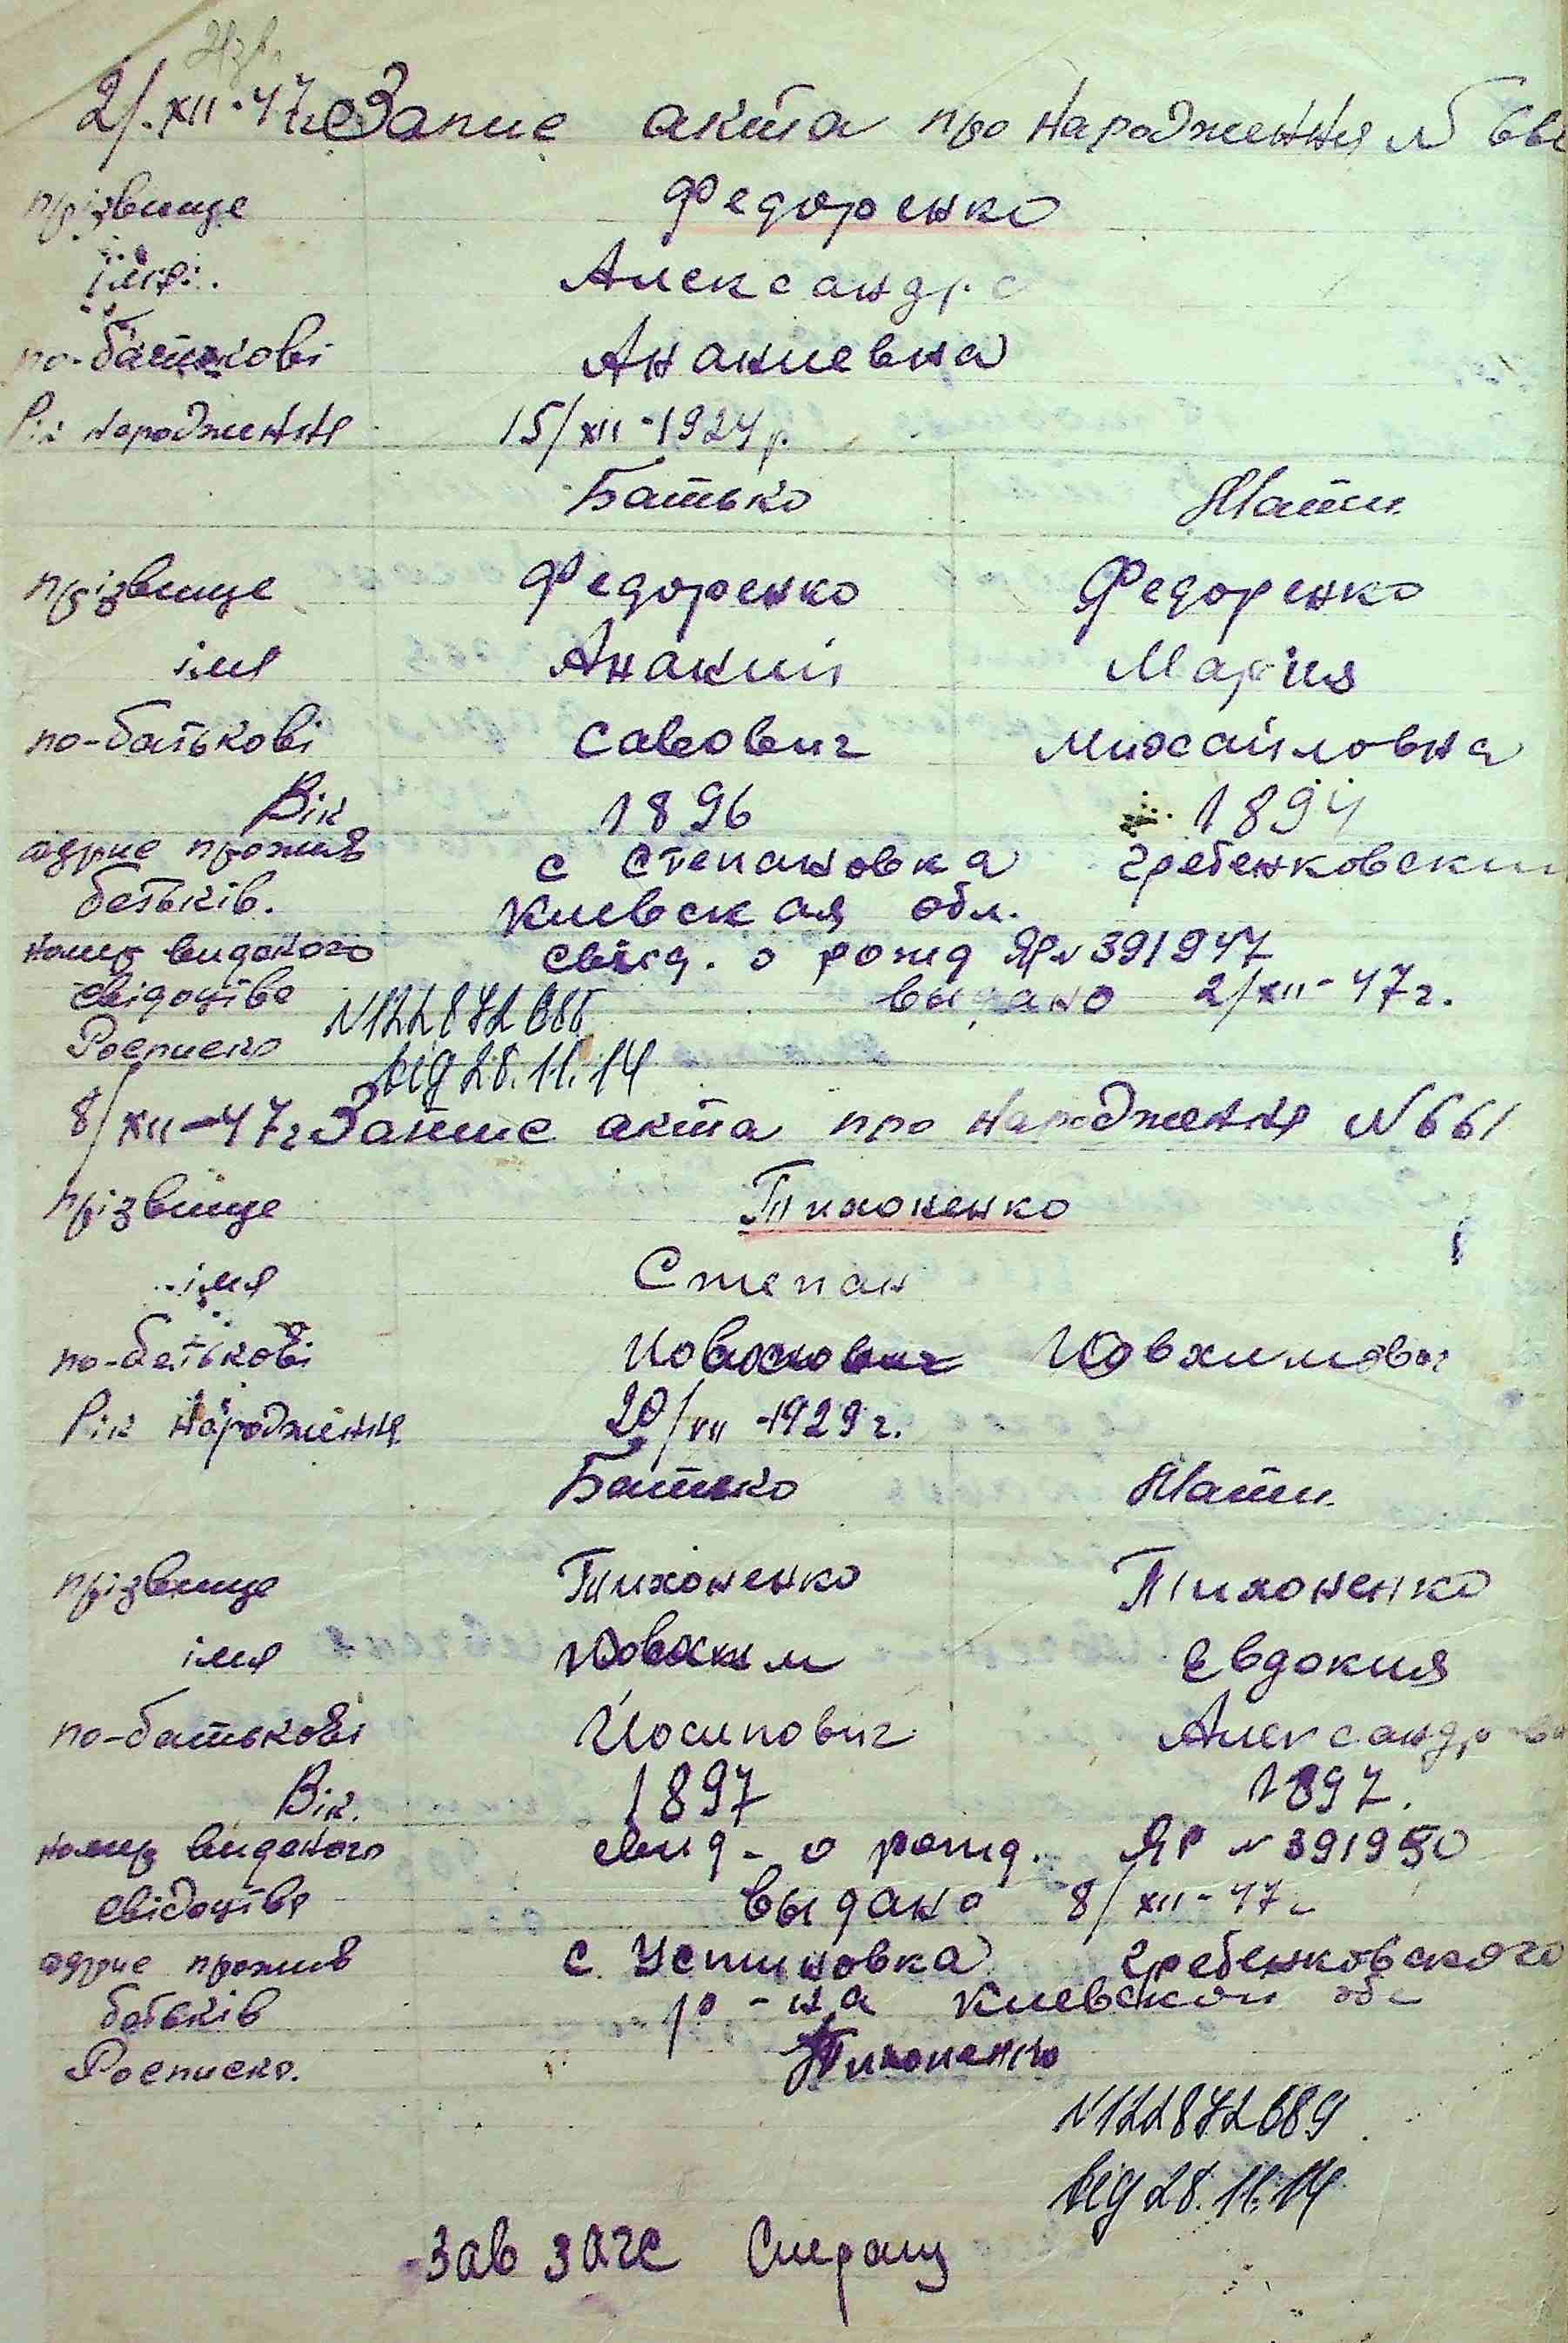 2/.XII-47г Запис акта про народження N 66
прізвище Федоренко
імя. Александра
по-батькові Ананиевна
Рік народження 15/XII-1924 р.
Батько Мати
прізвище Федоренко Федоренко
імя Ананий Мария
по-батькові Савович Михайловна
Вік 1896 1894
адрис прожив с Степановка Гребенковский
батьків. Киевская обл.
номер виданого свид. о рожд ЯР N 391947
свідоцтва выдано 2/XII-47г.
Росписка N122872688
від 28.11.14
8/XII-47г Запис акта про народження N661
прізвище Тихоненко
імя Степан
по-батькові Иовхимович
Рік народження 20/VII-1929г.
Батько Мати
прізвище Тихоненко Тихоненко
імя Иовхим Евдокия
по-батькові Йосипович Александров
Вік. 1897 1897.
номер виданого свид - о рожд. ЯР N 391950
свідоцтва выдано 8/XII-47г
адрис прожив с. Устиновка Гребенковского
батьків р-на Киевской об
Росписка. Тихоненко
N122872689
від 28.11.14
Зав ЗАГС